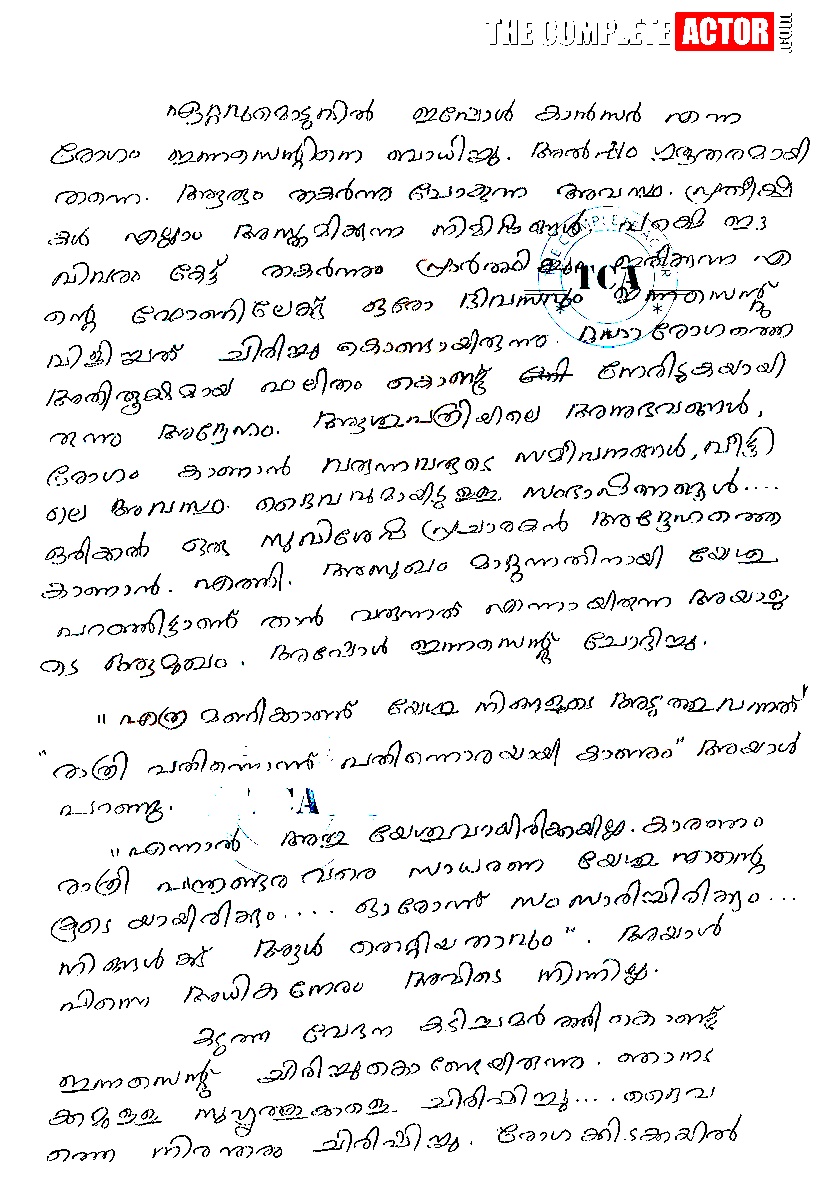 THE COMPLETE ACTOR .com
ഏറ്റവുമൊടുവിൽ ഇപ്പോൾ കാൻസർ എന്ന
രോഗം ഇന്നസെന്റിനെ ബാധിച്ചു. അൽപ്പം ഗുരുതരമായി
തന്നെ. ആരും തകർന്നു പോകുന്ന അവസ്ഥ. പ്രതീക്ഷ
കൾ എല്ലാം അസ്തമിക്കുന്ന നിമിഷങ്ങൾ. പക്ഷെ ഈ
വിവരം കേട്ട് തകർന്നും പ്രാർത്ഥിച്ചും ഇരിക്കുന്ന എ
ന്റെ ഫോണിലേക്ക് ഒരോ ദിവസവും ഇന്നസെന്റ്
വിളിച്ചത് ചിരിച്ചു കൊണ്ടായിരുന്നു. മഹാരോഗത്തെ
അതിരൂക്ഷമായ ഫലിതം കൊണ്ട് നേരിടുകയായി
രുന്നു അദ്ദേഹം. ആശുപത്രിയിലെ അനുഭവങ്ങൾ,
രോഗം കാണാൻ വരുന്നവരുടെ സമീപനങ്ങൾ, വീട്ടി
ലെ അവസ്ഥ. ദൈവവുമായിട്ടുള്ള സംഭാഷണങ്ങൾ....
ഒരിക്കൽ ഒരു സുവിശേഷ പ്രചാരകൻ അദ്ദേഹത്തെ
കാണാൻ. എത്തി. അസുഖം മാറ്റുന്നതിനായി യേശു
പറഞ്ഞിട്ടാണ് താൻ വരുന്നത് എന്നായിരുന്നു അയാളു
ടെ ആമുഖം. അപ്പോൾ ഇന്നസെന്റ് ചോദിച്ചു.
"എത്ര മണിക്കാണ് യേശു നിങ്ങളുടെ അടുത്തു വന്നത്"
"രാത്രി പതിനൊന്ന് പതിനൊരയായി കാണും" അയാൾ
പറഞ്ഞു.
"എന്നാൽ അത് യേശുവായിരിക്കയില്ല. കാരണം
രാത്രി പന്ത്രണ്ടര വരെ സാധരണ യേശു എന്റെ
കൂടെയായിരിക്കും.... ഓരോന്ന് സംസാരിച്ചിരിക്കും...
നിങ്ങൾക്ക് ആൾ തെറ്റിയതാവും". അയാൾ
പിന്നെ അധികനേരം അവിടെ നിന്നില്ല.
കടുത്ത വേദന കടിച്ചമർത്തി കൊണ്ട്
ഇന്നസെന്റ് ചിരിച്ചുകൊണ്ടേയിരുന്നു. ഞാനട
ക്കമുള്ള സുഹൃത്തുക്കളെ ചിരിപ്പിച്ചു.... ദൈവ
ത്തെ നിരന്തരം ചിരിപ്പിച്ചു. രോഗക്കിടക്കയിൽ
THE COMPLETE ACTOR
TCA